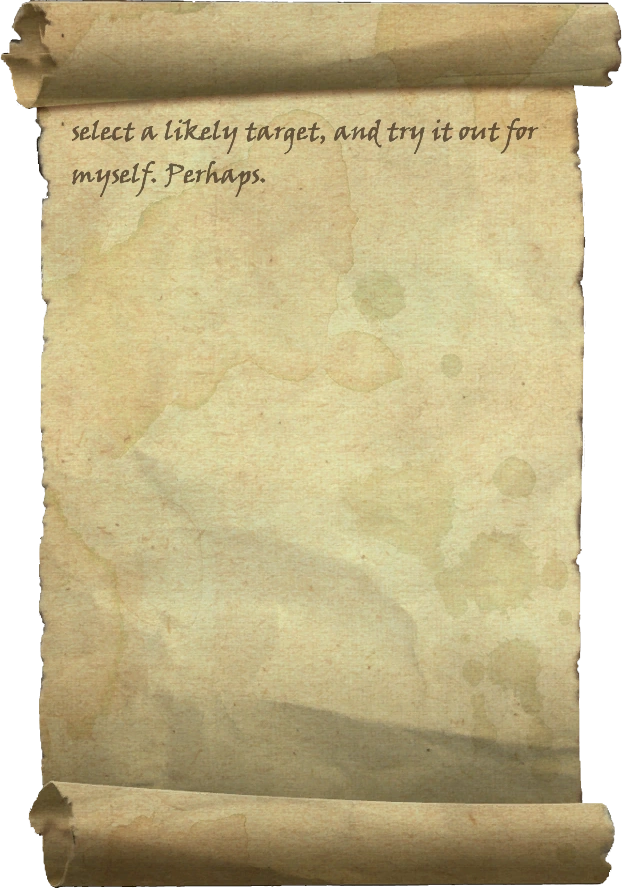 select a likely target, and try it out for
myself. Perhaps.